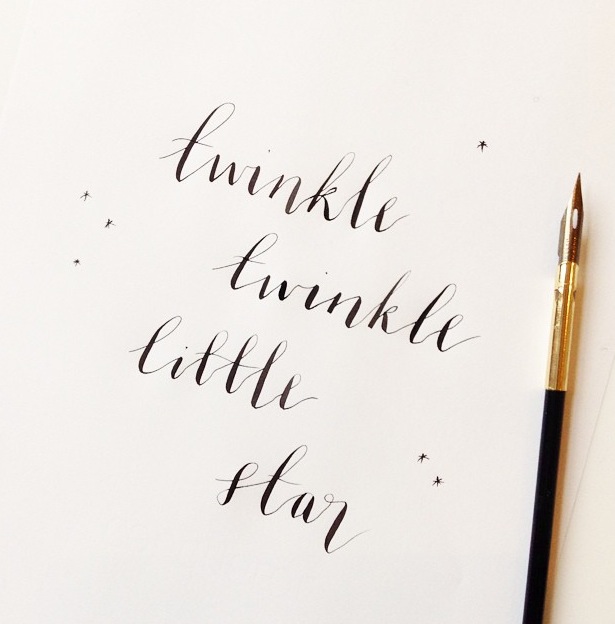 twinkle
twinkle
little
star